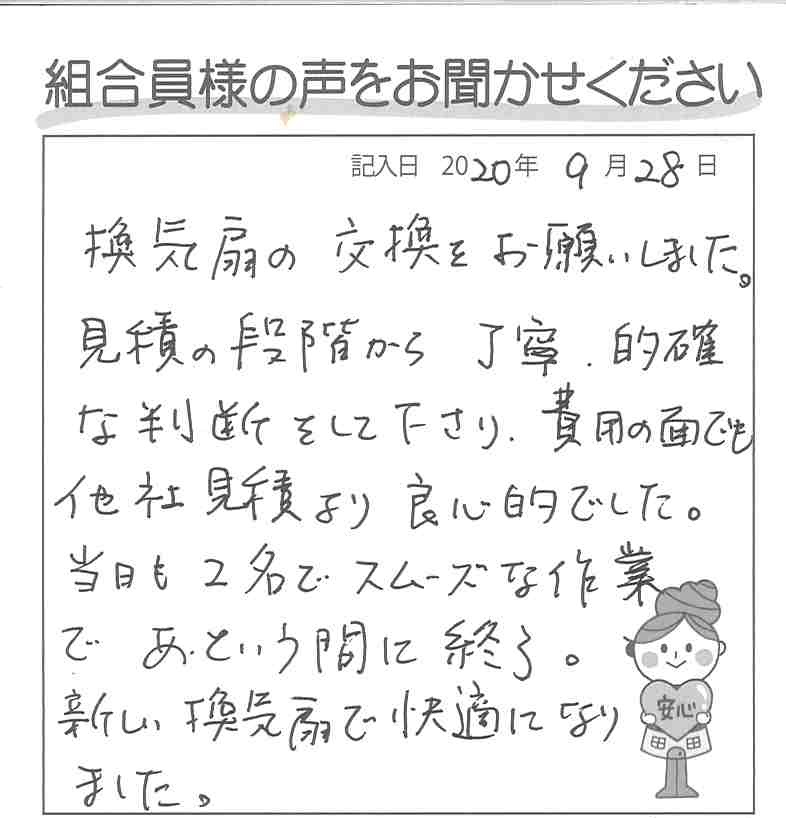 組合員様の声をお聞かせください
記入日 2020年 9月28日
換気扇の交換をお願いしました。
見積の段階から丁寧、的確
な判断をして下さり、費用の面でも
他社見積より良心的でした。
当日も2名でスムーズな作業
で あっという間に終了。
新しい換気扇で快適になり
ました。
安心